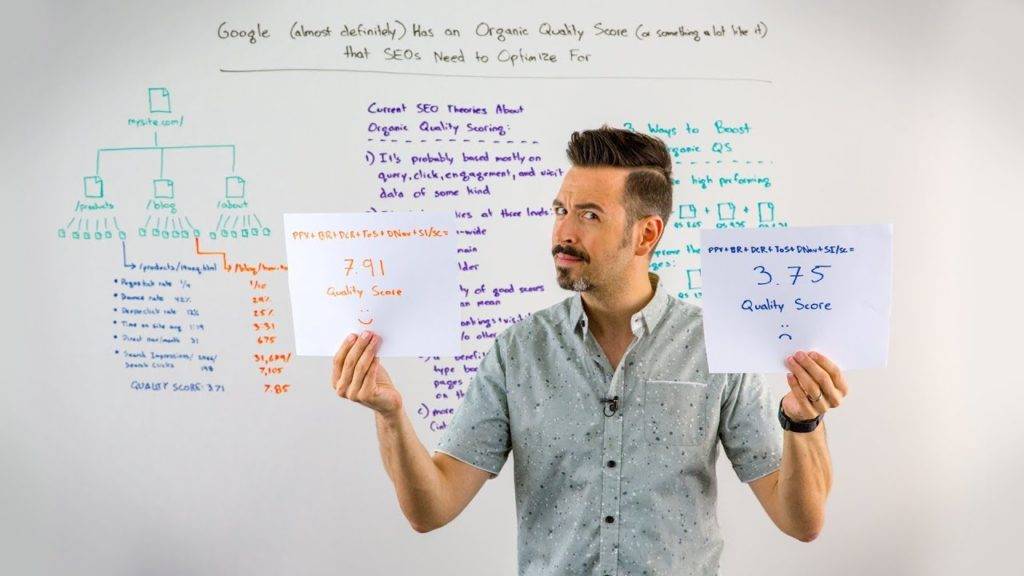 Google (almost definitely) Has an Organic Quality Score (or something a lot like it)
that SEOs Need to Optimize For
mysite.com/
/products
/blog
/about
/products/
/blog/
Bounce rate 42%
Time on site avg 1:19
Search Impressions/
Search Clicks 198
QUALITY SCORE: 3.71
1/10
29%
25%
3:31
675
7,105
7.85
Current SEO Theories About
Organic Quality Scoring:
1) It's probably based mostly on
query, click, engagement, and visit
data of some kind
at three levels:
-wide
main
lder
ty of good scores
an mean
ankings + visit
/o other
a benefi
type bo
pages
on th
c) more
(int
3 Ways to Boost
Organic QS
high performing
QS 8.25
QS 9.25
prove the
PPV+BR+DCR+ToS+DNav+SI/SC=
7.91
Quality Score
PPV+BR+DCR+ToS+DNav+SI/SC=
3.75
Quality Score